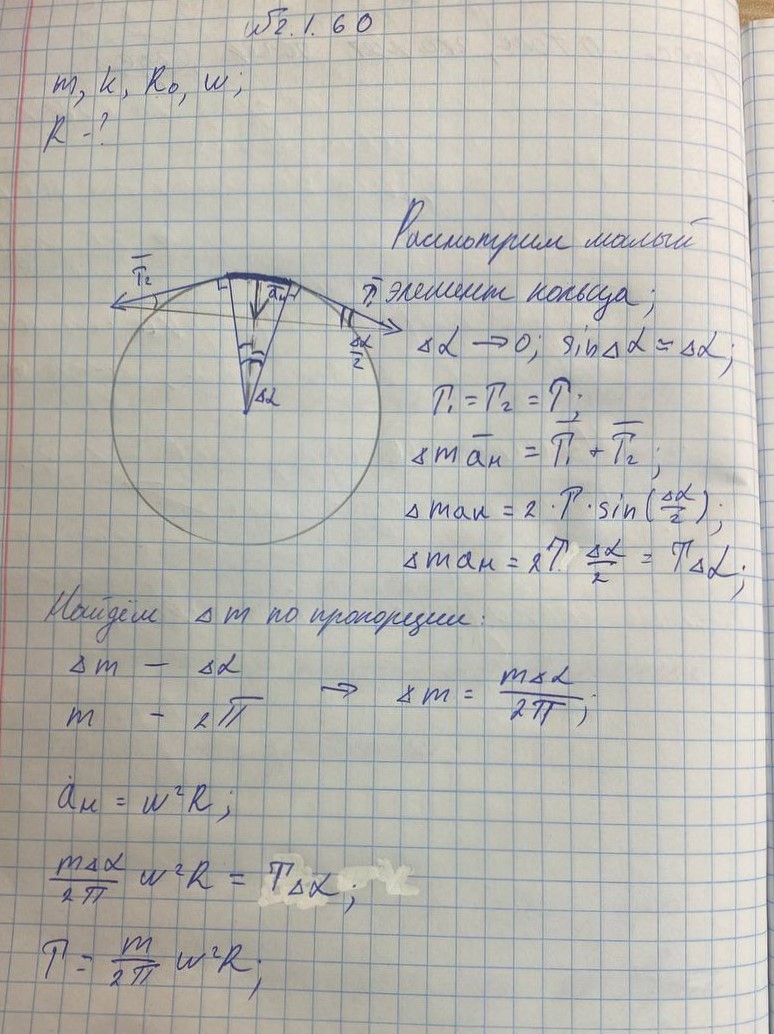 №2.1.60
m, k, R₀, w;
R - ?
Рассмотрим малый
элемент кольца;
T̅₂
a̅ₙ
T̅₁
Δα/2
Δα
Δα → 0; sinΔα ≈ Δα;
T₁ = T₂ = T;
Δm a̅ₙ = T̅₁ + T̅₂;
Δmaₙ = 2 · T · sin(Δα/2);
Δmaₙ = 2T Δα/2 = TΔα;
Найдём Δm по пропорции:
Δm — Δα
m - 2π → Δm = mΔα/2π;
aₙ = w²R;
mΔα/2π w²R = TΔα;
T = m/2π w²R;